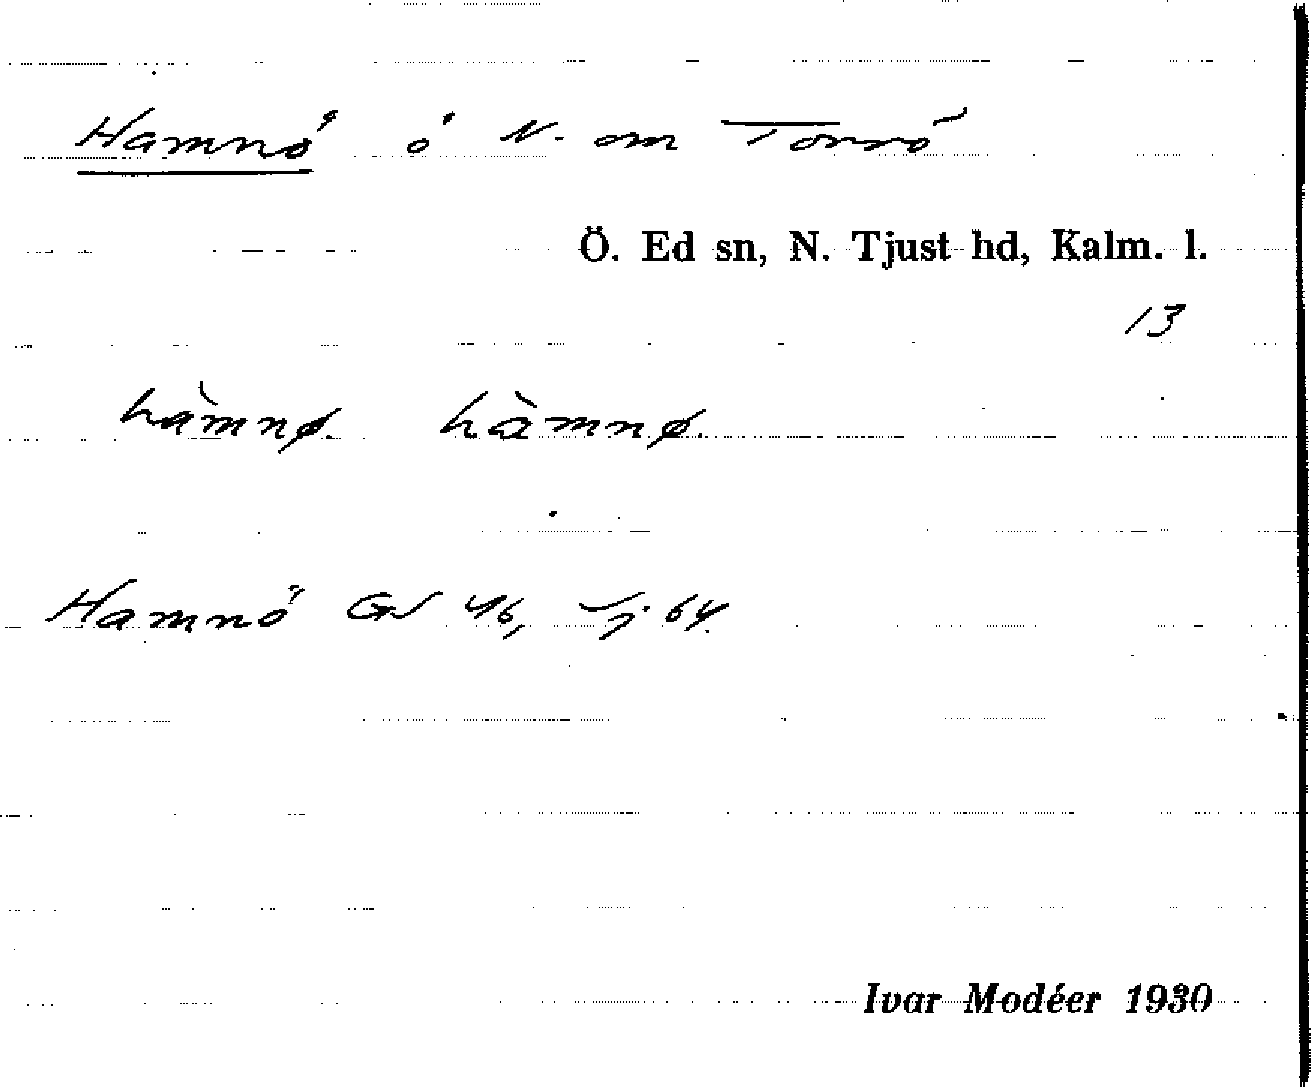 Hamnö ö N. om Torrö
Ö. Ed sn, N. Tjust hd, Kalm. l.
13
hàmnø. hàmnø.
Hamnö GV 46, Sj. 64.
Ivar Modéer 1930